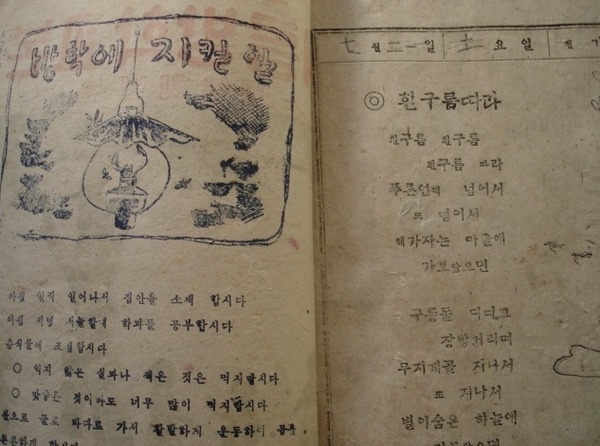 방학에 지킬 일
아침 일직 일어나서 집안을 소제 합시다
아침 저녁 서늘할때 학과를 공부합시다
음식물에 조심합시다
○ 익지 않은 실과나 썩은 것은 먹지맙시다
○ 맛있는 것이라도 너무 많이 먹지맙시다
산으로 들로 바다로 가서 활발하게 운동하여 몸을
튼튼하게 합시다
七월 二一일 土 요일
◎ 흰구름따라
흰구름 흰구름
흰구름 따라
푸른언덕 넘어서
또 넘어서
해가자는 마을에
가보았으면
구름들 디디고
장방거리며
무지개골 지나서
또 지나서
별이숨은 하늘에
가보았으면